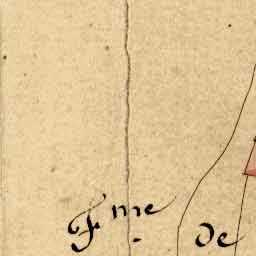 Fme de